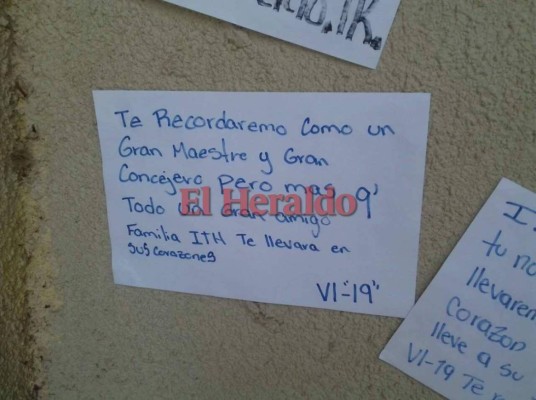 I.K.
Te Recordaremo Como un
Gran Maestre y Gran
Concejero pero mas 9'
Todo un Gran amigo
El Heraldo
Familia ITH Te llevara en
sus corazones
VI-"19"
I.
tu no
llevarem
Corazon
lleve a su
VI-19 Te r